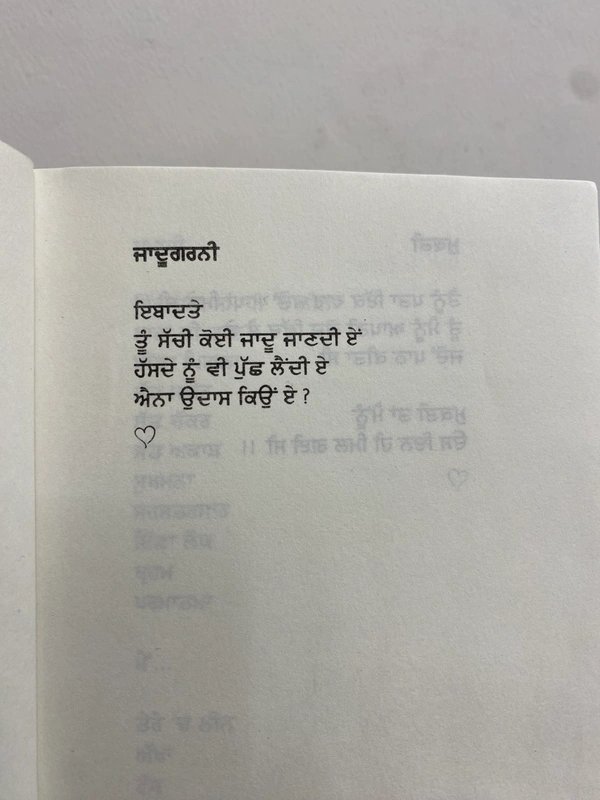 ਜਾਦੂਗਰਨੀ
ਇਬਾਦਤੇ
ਤੂੰ ਸੱਚੀ ਕੋਈ ਜਾਦੂ ਜਾਣਦੀ ਏਂ
ਹੱਸਦੇ ਨੂੰ ਵੀ ਪੁੱਛ ਲੈਂਦੀ ਏ
ਐਨਾ ਉਦਾਸ ਕਿਉਂ ਏ ?